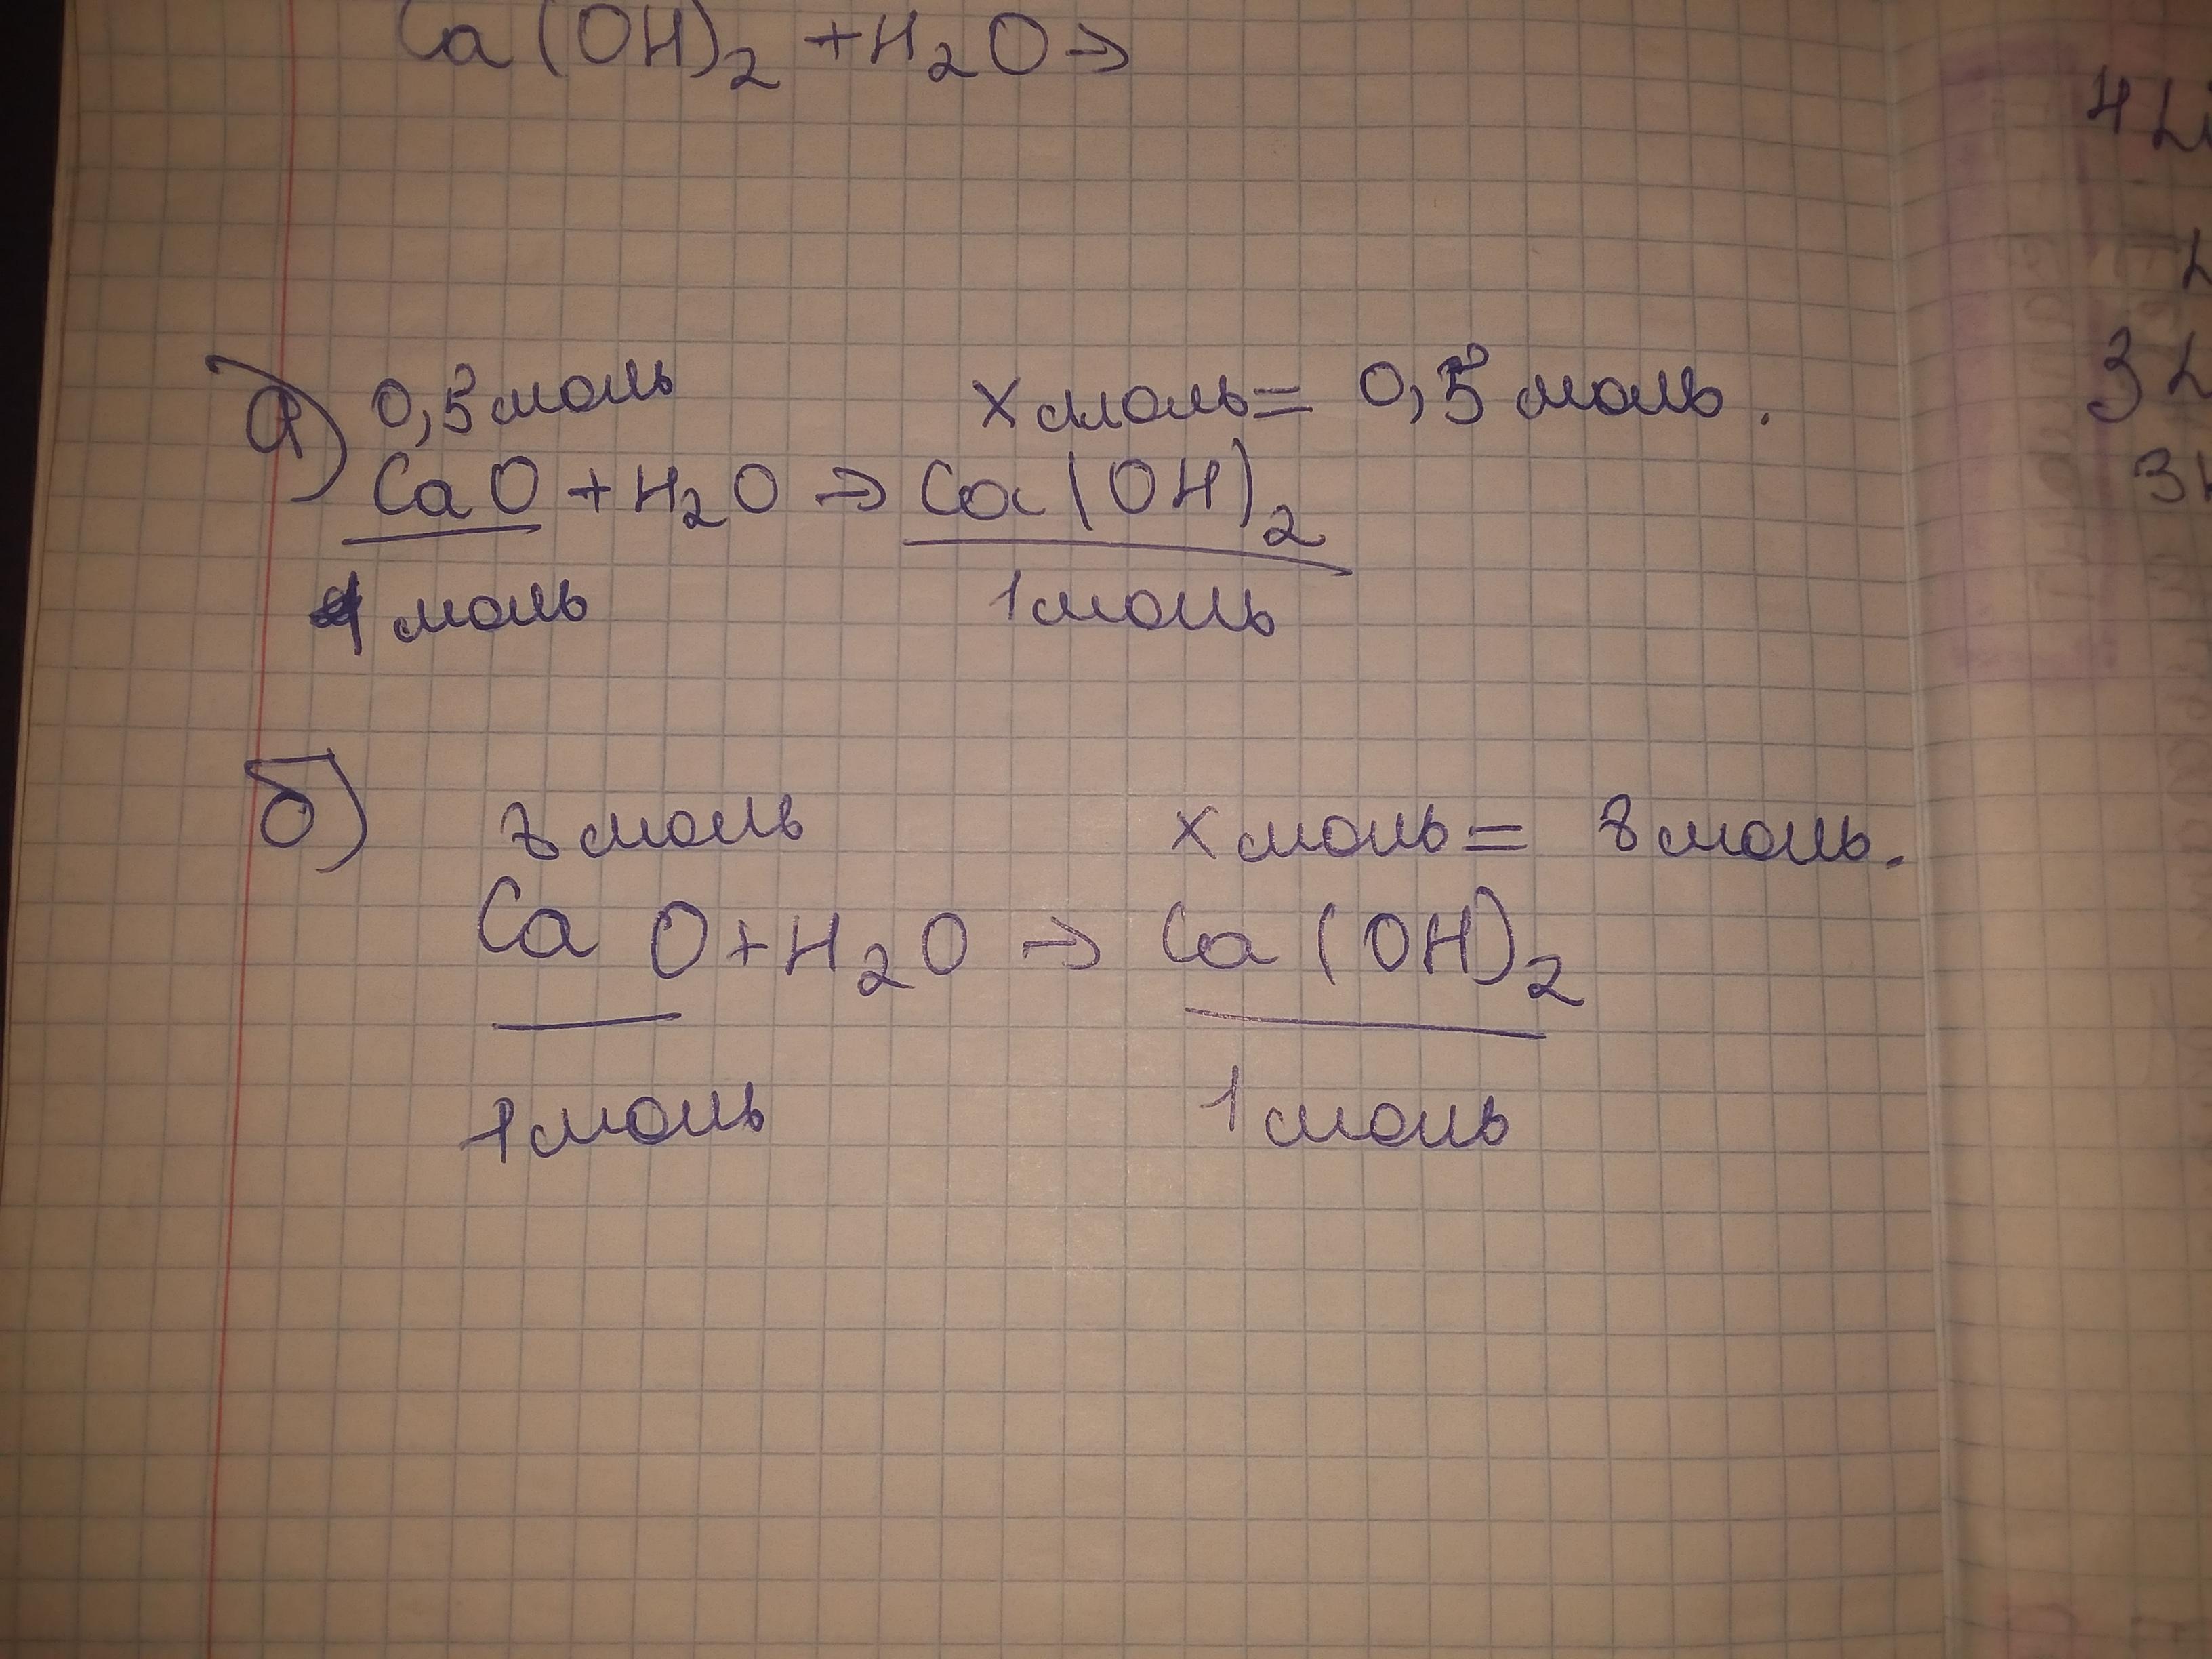 Ca(OH)₂ + H₂O →
а) 0,5 моль х моль = 0,5 моль.
CaO + H₂O → Ca(OH)₂
1 моль 1 моль
б) 8 моль х моль = 8 моль.
CaO + H₂O → Ca(OH)₂
1 моль 1 моль
4Li
3L